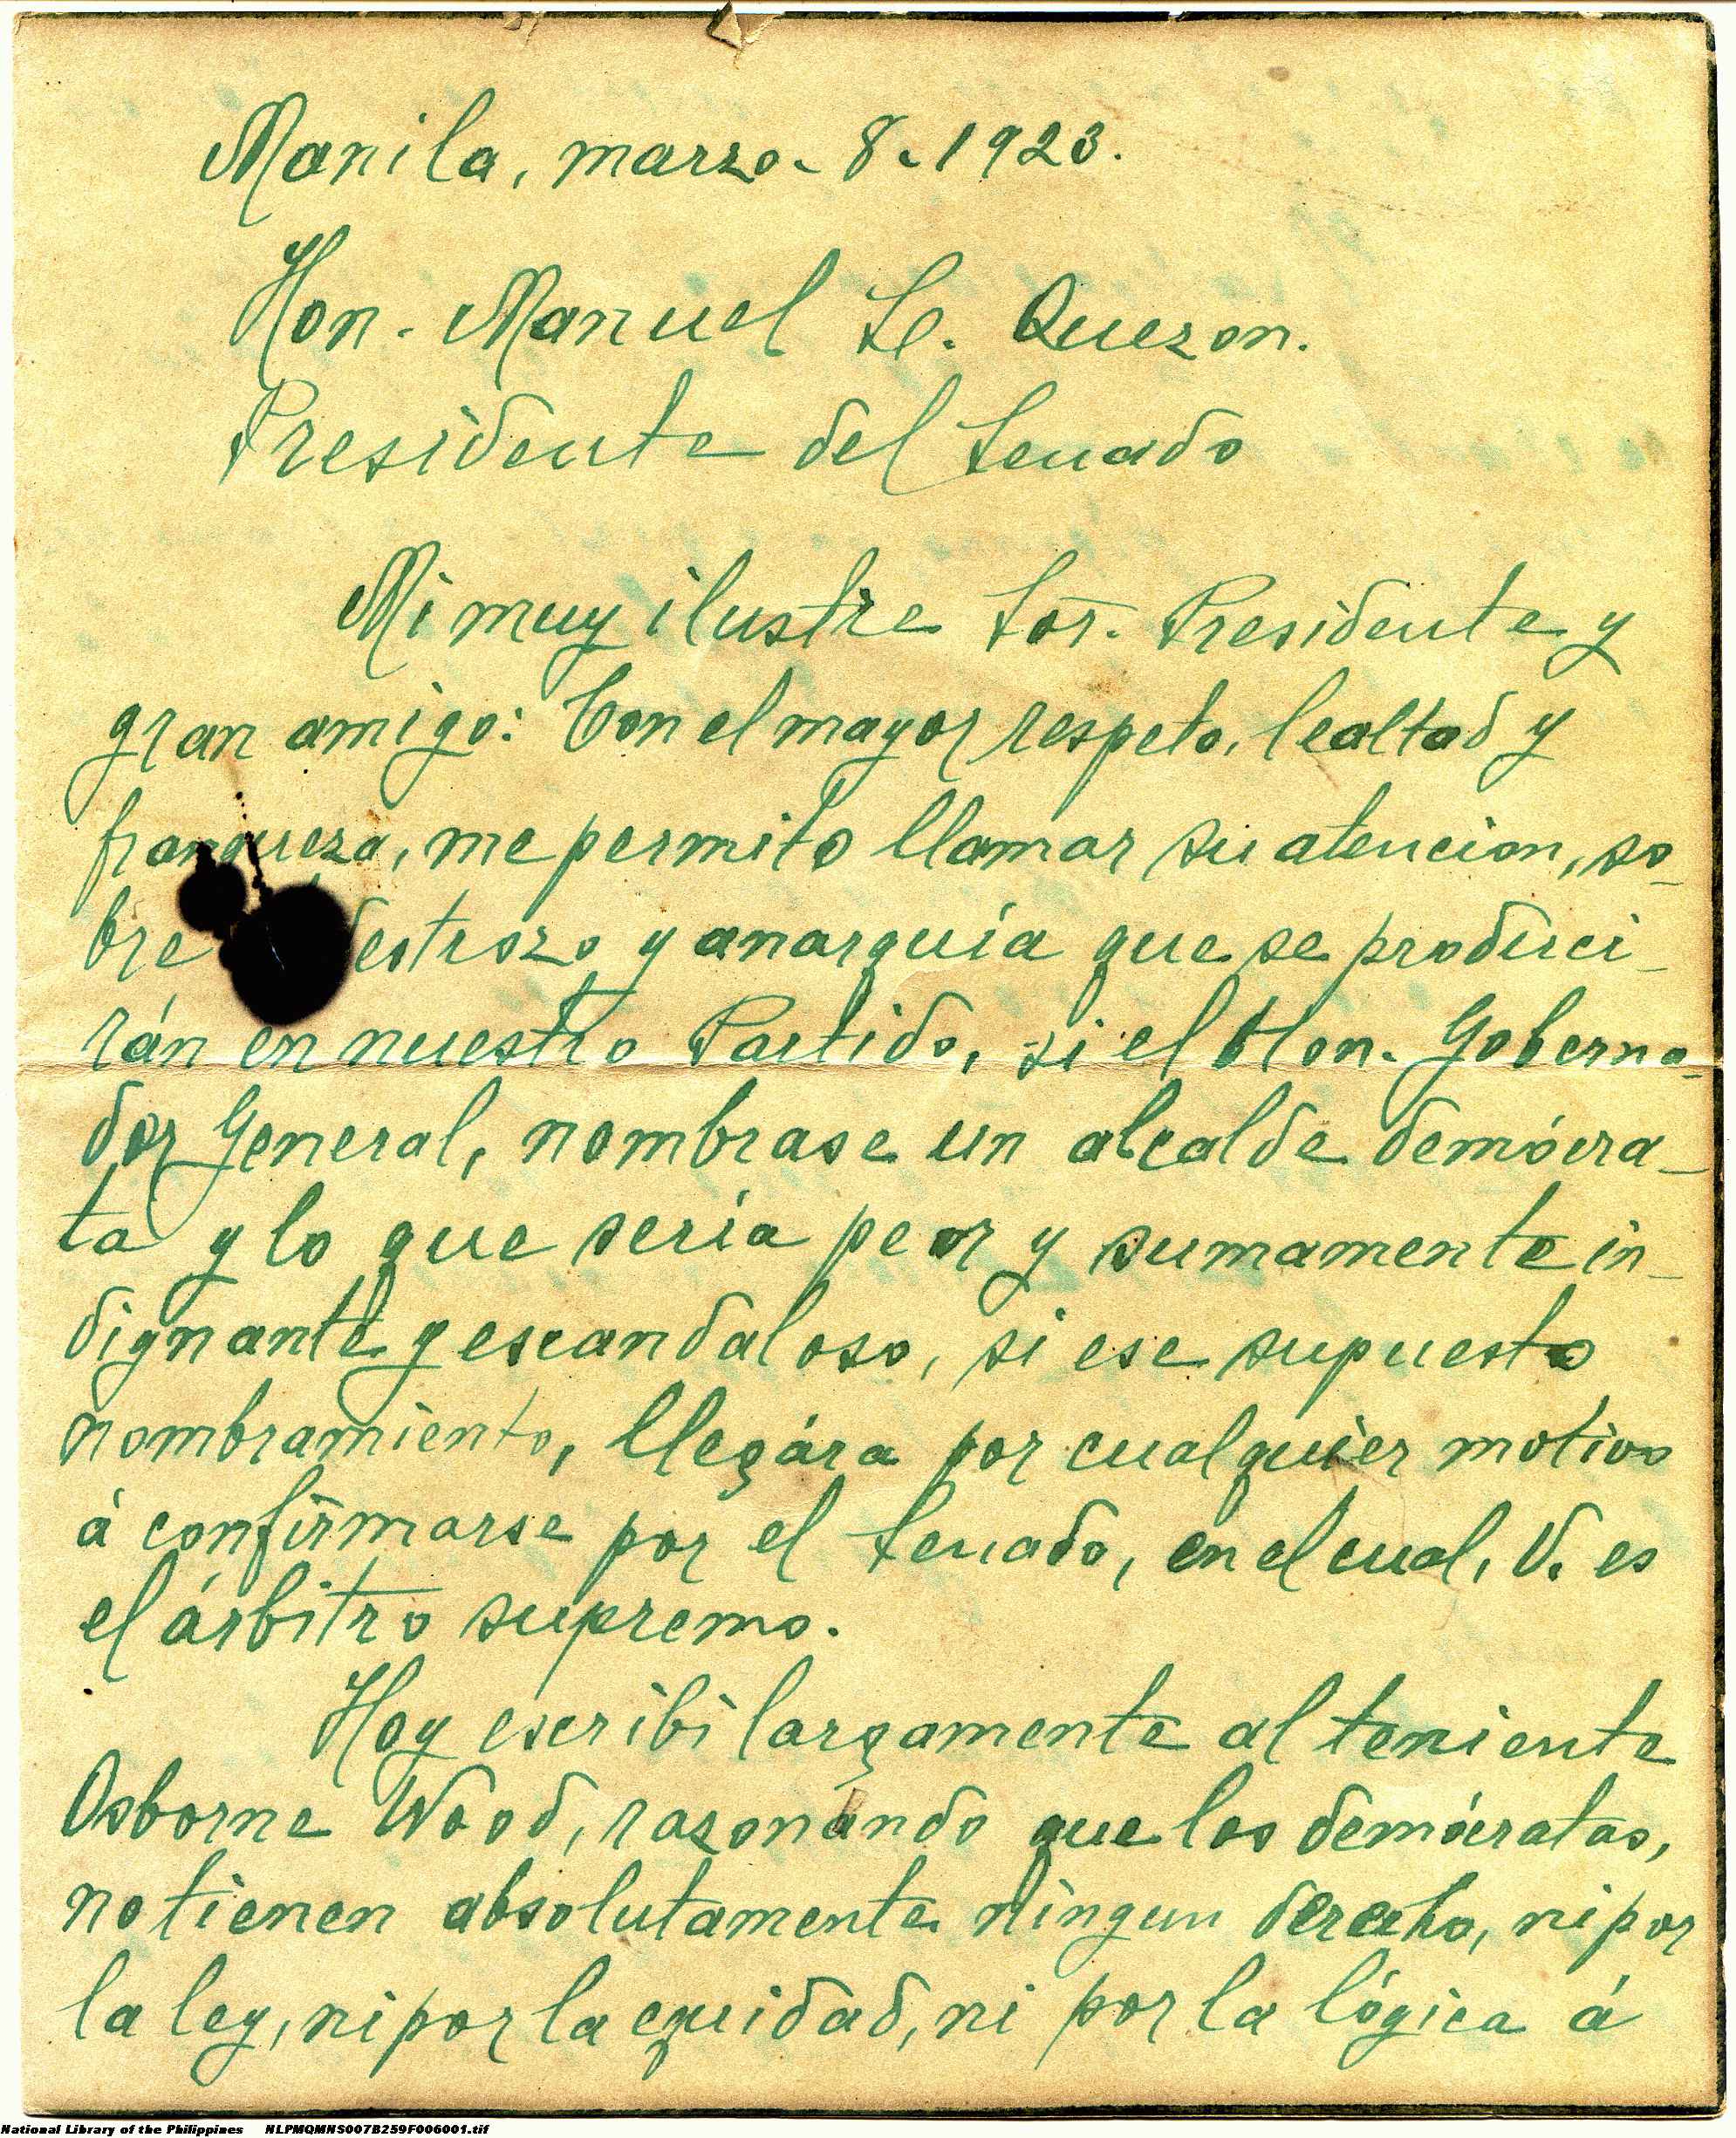 Manila, marzo - 8 - 1923.
Hon. Manuel L. Quezon.
Presidente del Senado
Mi muy ilustre Sor. Presidente y
gran amigo: Con el mayor respeto, lealtad y
franqueza, me permito llamar su atencion, so-
bre destrozo y anarquía que se produci-
rán en nuestro Partido, si el Hon. Goberna-
dor General, nombrase un alcalde demócra-
ta y lo que sería peor y sumamente in-
dignante y escandaloso, si ese supuesto
nombramiento, llegára por cualquier motivo
á confirmarse por el Senado, en el cual, V. es
el árbitro supremo.
Hoy escribí largamente al teniente
Osborne Wood, razonando que los demócratas,
no tienen absolutamente ningun derecho, ni por
la ley, ni por la equidad, ni por la lógica á
National Library of the Philippines NLPMQMNS007B259F006001.tif